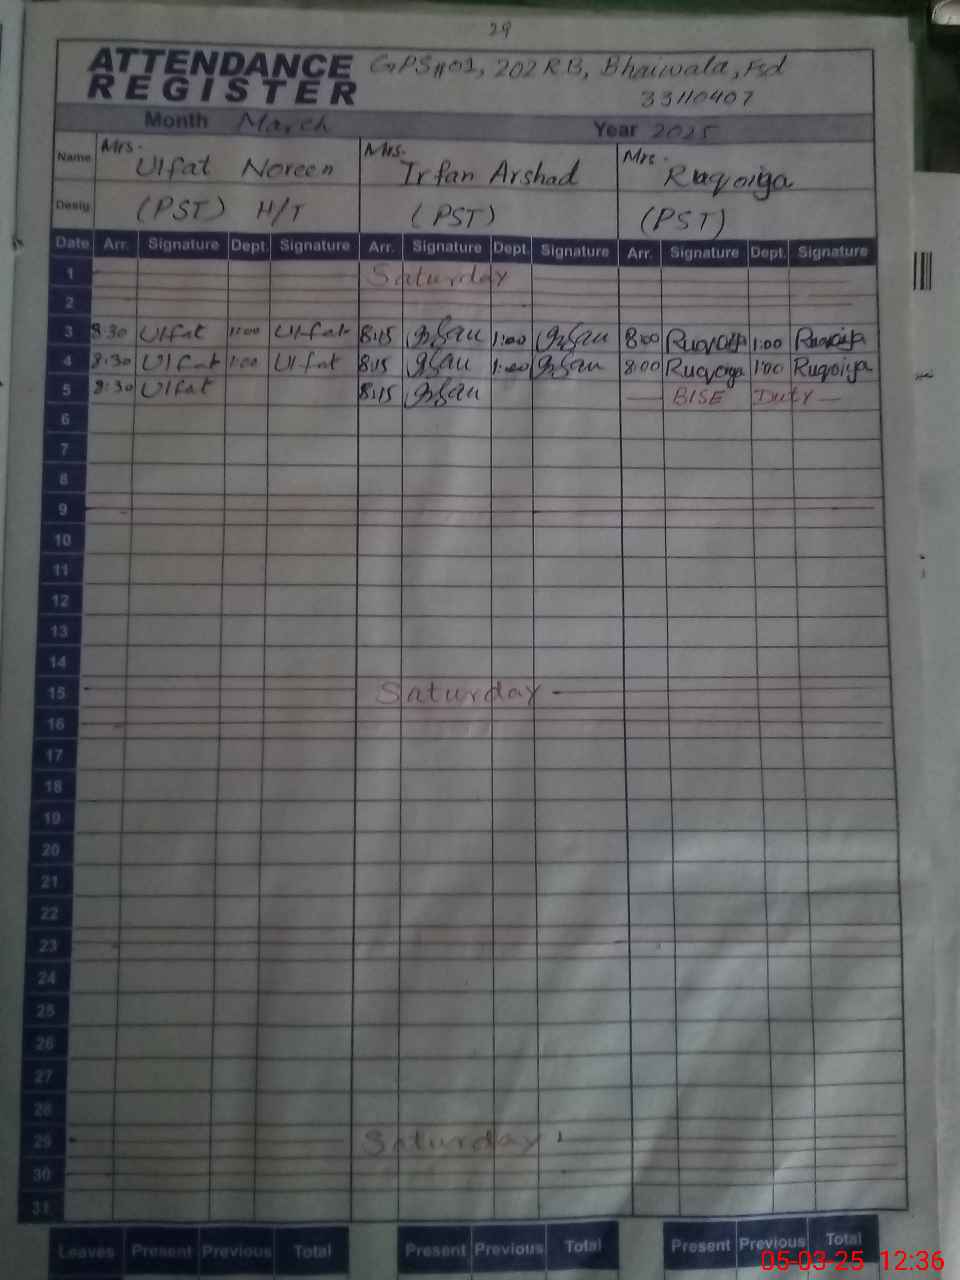 29
ATTENDANCE REGISTER GPS#01, 202 RB, Bhaiwala, Fsd
33110407
Month March Year 2025
Name Mrs. Ulfat Noreen Mrs. Irfan Arshad Mrs. Ruqoiya
Desig (PST) H/T (PST) (PST)
Date Arr. Signature Dept. Signature Arr. Signature Dept. Signature Arr. Signature Dept. Signature
1 Saturday
2
3 8:30 Ulfat 1:00 Ulfat 8:15 1:00 8:00 Ruqoiya 1:00 Ruqoiya
4 8:30 Ulfat 1:00 Ulfat 8:15 1:00 8:00 Ruqoiya 1:00 Ruqoiya
5 8:30 Ulfat 8:15 BISE Duty
6
7
8
9
10
11
12
13
14
15 Saturday
16
17
18
19
20
21
22
23
24
25
26
27
28
29 Saturday
30
31
Leaves Present Previous Total Present Previous Total Present Previous Total
05-03-25 12:36